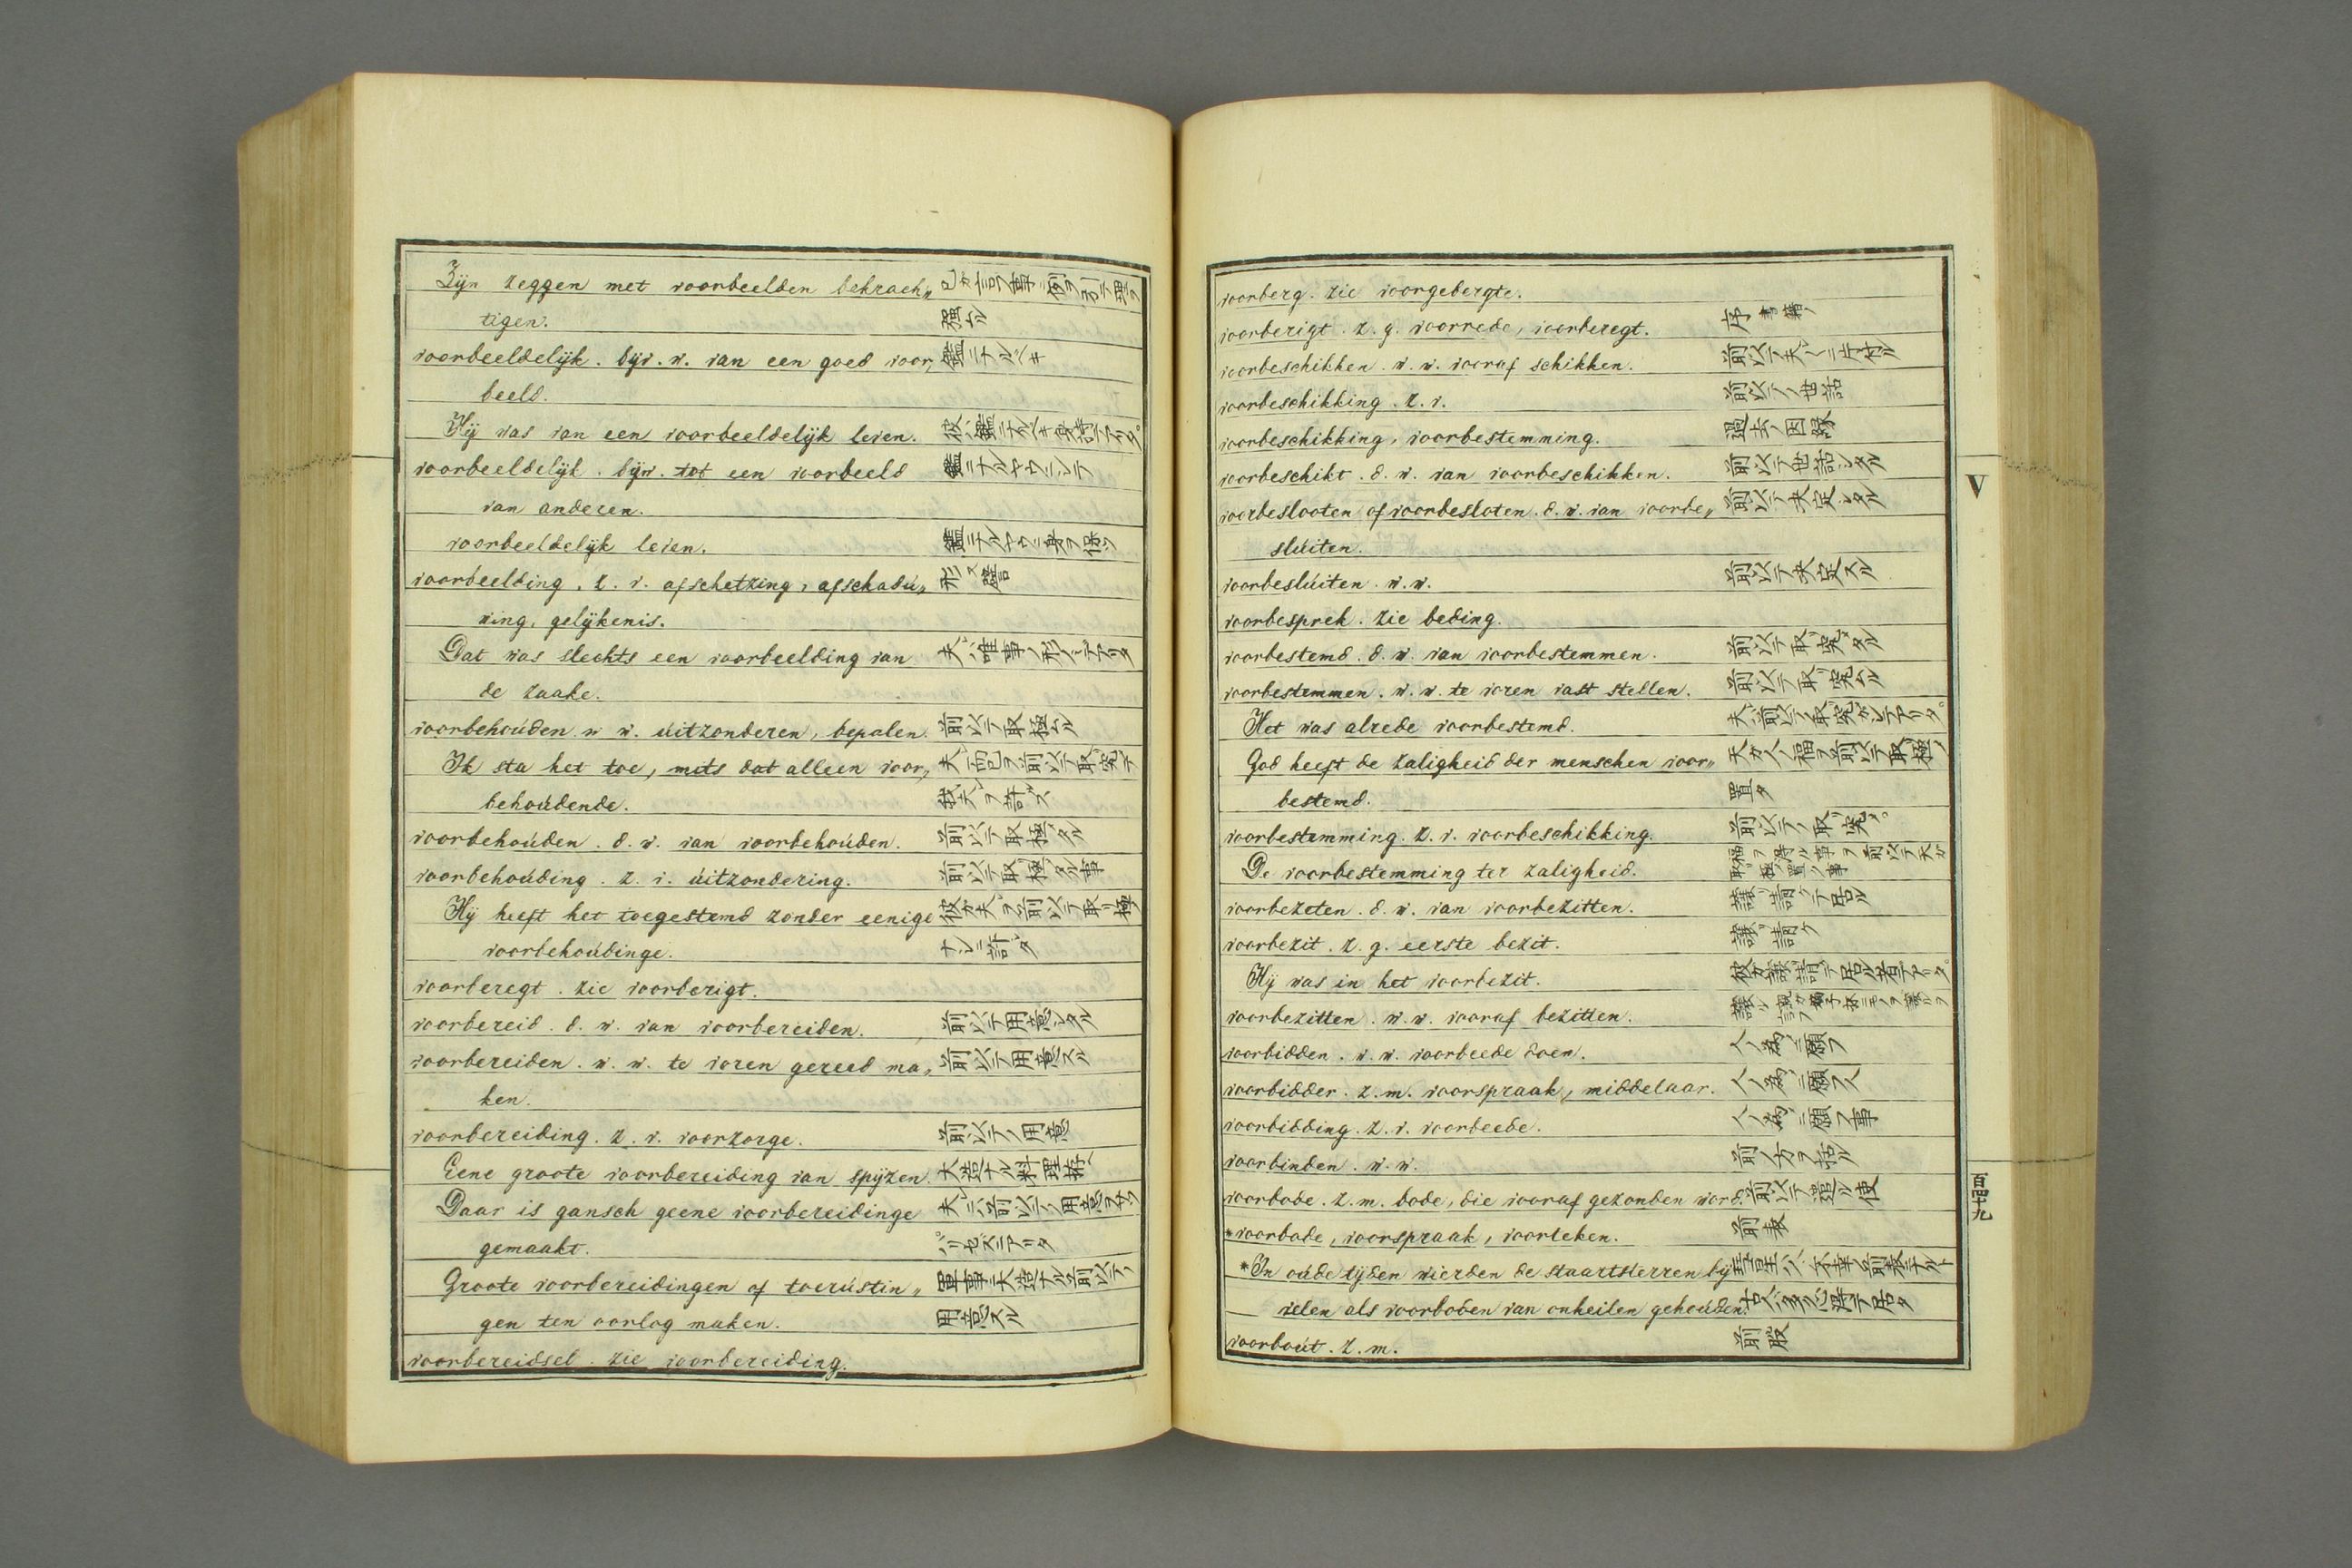 Zijn zeggen met voorbeelden bekrach„ 己ガ言フ事ニ例ヲ引テ理ヲ
tigen. 強ムル
voorbeeldelijk. bijv. w. van een goed voor„ 鑑ニナルベキ
beeld.
Hij was van een voorbeeldelijk leven.
voorbeeldelijk. bijw. tot een voorbeeld 鑑ニナルヤウニシテ
van anderen.
voorbeeldelijk leven. 鑑ニナルヤウニ身ヲ保ツ
voorbeelding. z. v. afschetzing, afschadu„ 形又譬
wing, gelijkenis.
Dat was slechts een voorbeelding van
de zaake.
voorbehouden. w. w. uitzonderen, bepalen. 前以テ取極ムル
Ik sta het toe, mits dat alleen voor„
behoudende.
voorbehouden. d. w. van voorbehouden. 前以テ取極メタル
voorbehouding. z. v. uitzondering. 前以テ取極メタル事
Hij heeft het toegestemd zonder eenige 彼ガ夫ヲ前以テ取リ極
voorbehoudinge. ナシニ許シタ
voorberegt. zie voorberigt.
voorbereid. d. w. van voorbereiden. 前以テ用意シタル
voorbereiden. w. w. te voren gereed ma„ 前以テ用意スル
ken.
voorbereiding. z. v. voorzorge. 前以テノ用意
Eene groote voorbereiding van spijzen. 大造ナル料理拵ヘ
Daar is gansch geene voorbereidinge 夫ニハ前以テノ用意ヲサツ
gemaakt. パリセズニアリタ
Groote voorbereidingen of toerustin„ 軍事ニ大造ナル前以テノ
gen ten oorlog maken. 用意スル
voorbereidsel. zie voorbereiding.
voorberg. zie voorgebergte.
voorberigt. z. g. voorrede, voorberegt. 序 書籍ノ
voorbeschikken. w. w. vooraf schikken.
voorbeschikking. z. v. 前以テノ世話
voorbeschikking, voorbestemming. 過去ノ因縁
voorbeschikt. d. w. van voorbeschikken. 前以テ世話シタル
voorbeslooten of voorbesloten. d. w. van voorbe„ 前以テ決定シタル
sluiten.
voorbesluiten. w. w. 前以テ决定スル
voorbesprek. zie beding.
voorbestemd. d. w. van voorbestemmen. 前以テ取究メタル
voorbestemmen. w. w. te voren vast stellen. 前以テ取究ムル
Het was alrede voorbestemd. 夫ハ前以テ取究メテアリタ。
God heeft de zaligheid der menschen voor„ 天ガ人ノ福ヲ前以テ取極メ
bestemd. 置タ
voorbestemming. z. v. voorbeschikking. 前以テノ取究メ。
De voorbestemming ter zaligheid.
voorbezeten. d. w. van voorbezitten. 譲リ請ケテ居ル
voorbezit. z. g. eerste bezit. 譲リ請ケ
Hij was in het voorbezit.
voorbezitten. w. w. vooraf bezitten.
voorbidden. w. w. voorbeede doen. 人ノ為ニ願フ
voorbidder. z. m. voorspraak, middelaar. 人ノ為ニ願フ人
voorbidding. z. v. voorbeede. 人ノ為ニ願フ事
voorbinden. w. w. 前ノ方ヲ括ル
voorbode. z. m. bode, die vooraf gezonden word. 前以テ遣ル使
*voorbode, voorspraak, voorteken. 前表
*In oude tijden wierden de staartsterren bij
velen als voorboden van onheilen gehouden.
voorbout. z. m. 前股
V
百四十九